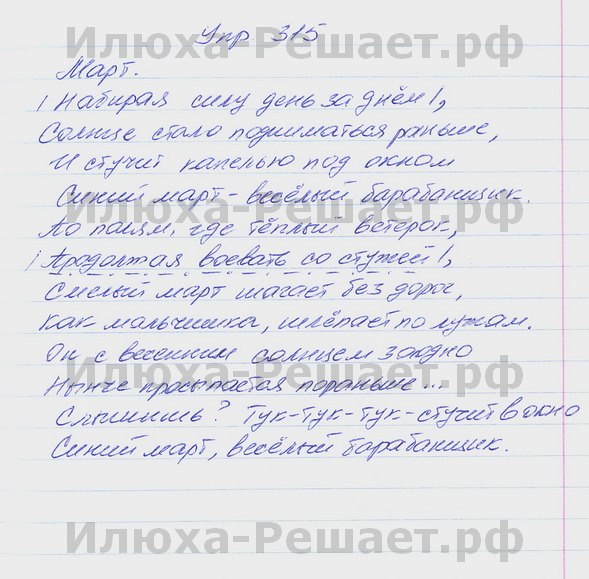 Илюха-Решает.рф
Упр. 315
Март.
| Набирая силу день за днём |,
Солнце стало подниматься раньше,
И стучит капелью под окном
Синий март - весёлый барабанщик.
Илюха-Решает.рф
По полям, где тёплый ветерок,
| Продолжая воевать со стужей |,
Смелый март шагает без дорог,
Как мальчишка, шлёпает по лужам.
Он с весенним солнцем заодно
Илюха-Решает.рф
Нынче просыпается пораньше...
Слышишь? Тук-тук-тук - стучит в окно
Синий март, весёлый барабанщик.
Илюха-Решает.рф